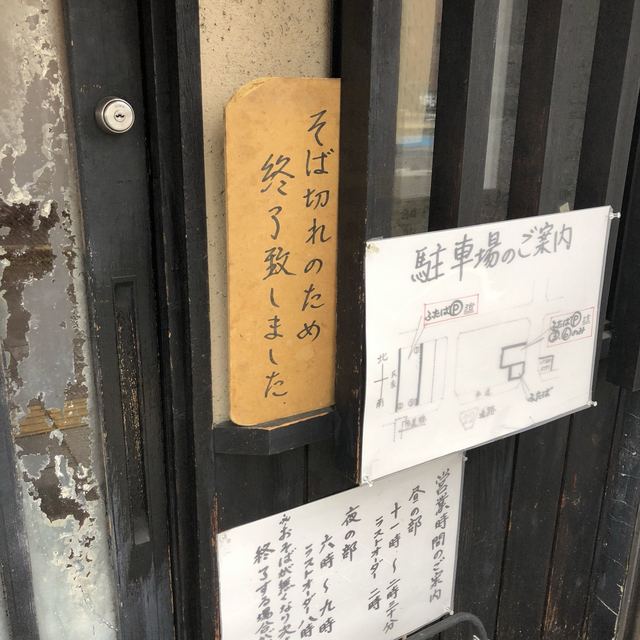 そば切れのため
終了致しました
駐車場のご案内
ふたばⓅ
北
南
ふたば
営業時間のご案内
昼の部
十一時〜二時三十分
ラストオーダー二時
夜の部
六時〜九時
ラストオーダー八時
終了する場合